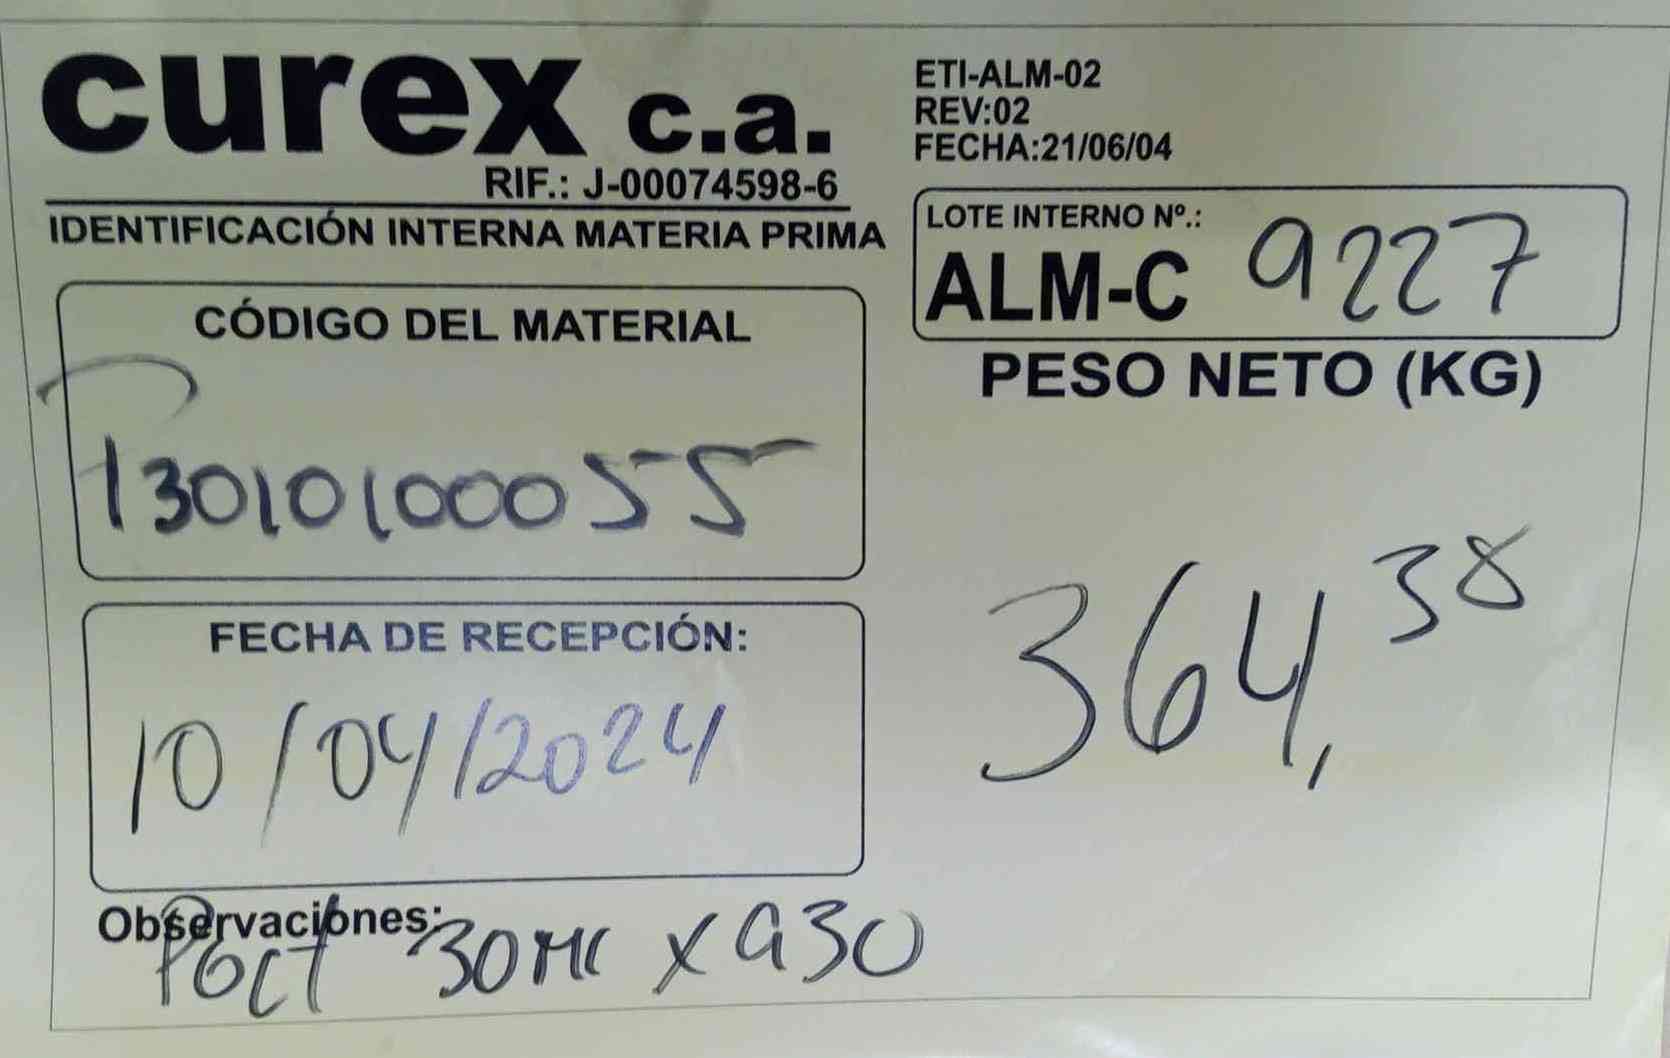 curex c.a.
RIF.: J-00074598-6
IDENTIFICACIÓN INTERNA MATERIA PRIMA
ETI-ALM-02
REV:02
FECHA:21/06/04
LOTE INTERNO Nº.:
ALM-C 9227
CÓDIGO DEL MATERIAL
P30101000055
PESO NETO (KG)
364,38
FECHA DE RECEPCIÓN:
10/04/2024
Observaciones:
30 MC X 930